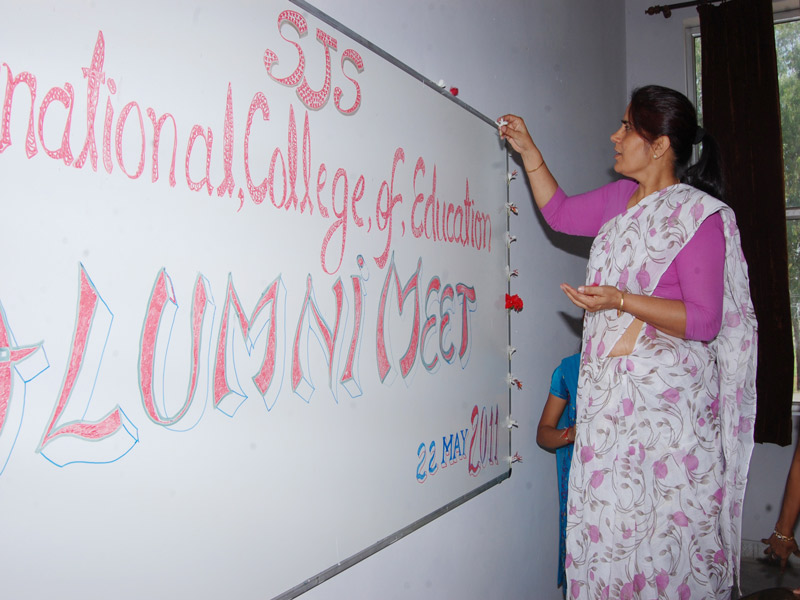 SJS
national, College, of, Education
ALUMNI MEET
22 MAY 2011